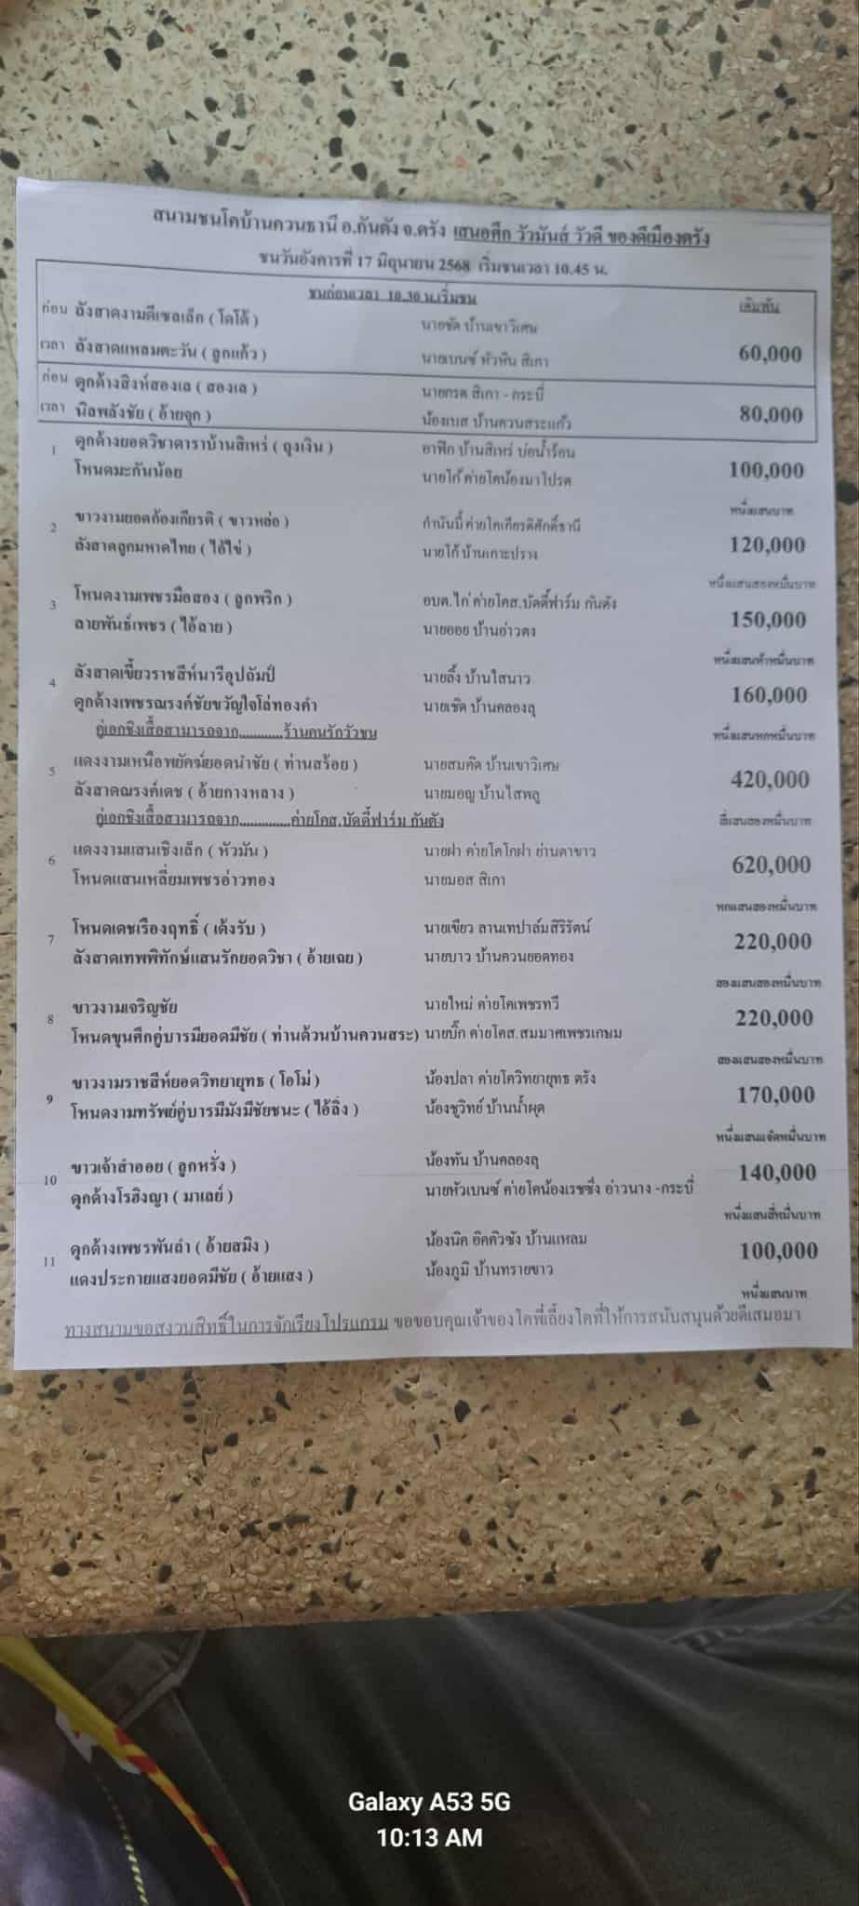 สนามชนโคบ้านควนธานี อ.กันตัง จ.ตรัง เสนอศึก วัวมันส์ วัวดี ของดีเมืองตรัง
ชนวันอังคารที่ 17 มิถุนายน 2568 เริ่มชนเวลา 10.45 น.
ชนก่อนเวลา 10.30 น.เริ่มชน เดิมพัน
ก่อน ลังสาดงามดีเซลเล็ก ( โดโด้ ) นายชัด บ้านเขาวิเศษ
เวลา ลังสาดแหลมตะวัน ( ลูกแก้ว ) นายเบนซ์ หัวหิน สิเกา 60,000
ก่อน ดุกด้างสิงห์สองเล ( สองเล ) นายกรด สิเกา - กระบี่
เวลา นิลพลังชัย ( อ้ายจุก ) น้องเบส บ้านควนสระแก้ว 80,000
1 ดุกด้างยอดวิชาดาราบ้านสิเหร่ ( ถุงเงิน ) อาฟิก บ้านสิเหร่ บ่อน้ำร้อน
โหนดมะกันน้อย นายโก้ ค่ายโคน้องมาโปรด 100,000
หนึ่งแสนบาท
2 ขาวงามยอดก้องเกียรติ ( ขาวหล่อ ) กำนันบี้ ค่ายโคเกียรติศักดิ์ธานี
ลังสาดลูกมหาดไทย ( ไอ้ไข่ ) นายโก้ บ้านเกาะปราง 120,000
หนึ่งแสนสองหมื่นบาท
3 โหนดงามเพชรมือสอง ( ลูกพริก ) อบต.ไก่ ค่ายโคส.บัดดี้ฟาร์ม กันตัง
ลายพันธ์เพชร ( ไอ้ลาย ) นายออย บ้านอ่าวตง 150,000
หนึ่งแสนห้าหมื่นบาท
4 ลังสาดเขี้ยวราชสีห์นารีอุปถัมป์ นายลิ้ง บ้านใสนาว
ดุกด้างเพชรณรงค์ชัยขวัญใจโล่ทองคำ นายเชิด บ้านคลองลุ 160,000
คู่เอกชิงเสื้อสามารถจาก...........ร้านคนรักวัวชน หนึ่งแสนหกหมื่นบาท
5 แดงงามเหนือพยัคฆ์ยอดนำชัย ( ท่านสร้อย ) นายสมคิด บ้านเขาวิเศษ
ลังสาดณรงค์เดช ( อ้ายกางหลาง ) นายมอญ บ้านใสพลู 420,000
คู่เอกชิงเสื้อสามารถจาก.............ค่ายโคส.บัดดี้ฟาร์ม กันตัง สี่แสนสองหมื่นบาท
6 แดงงามแสนเชิงเล็ก ( หัวมัน ) นายฝา ค่ายโคโกฝา ย่านตาขาว
โหนดแสนเหลี่ยมเพชรอ่าวทอง นายมอส สิเกา 620,000
หกแสนสองหมื่นบาท
7 โหนดเดชเรืองฤทธิ์ ( เด้งรับ ) นายเขียว ลานเทปาล์มสิริรัตน์
ลังสาดเทพพิทักษ์แสนรักยอดวิชา ( อ้ายเฉย ) นายบาว บ้านควนยอดทอง 220,000
สองแสนสองหมื่นบาท
8 ขาวงามเจริญชัย นายใหม่ ค่ายโคเพชรทวี
โหนดขุนศึกคู่บารมียอดมีชัย ( ท่านด้วนบ้านควนสระ ) นายบิ๊ก ค่ายโคส.สมมาศเพชรเกษม 220,000
สองแสนสองหมื่นบาท
9 ขาวงามราชสีห์ยอดวิทยายุทธ ( โอโม่ ) น้องปลา ค่ายโควิทยายุทธ ตรัง
โหนดงามทรัพย์คู่บารมีมังมีชัยชนะ ( ไอ้ลิ่ง ) น้องชูวิทย์ บ้านน้ำผุด 170,000
หนึ่งแสนเจ็ดหมื่นบาท
10 ขาวเจ้าสำออย ( ลูกหรั่ง ) น้องทัน บ้านคลองลุ
ดุกด้างโรฮิงญา ( มาเลย์ ) นายหัวเบนซ์ ค่ายโคน้องเรซซิ่ง อ่าวนาง -กระบี่ 140,000
หนึ่งแสนสี่หมื่นบาท
11 ดุกด้างเพชรพันล้ำ ( อ้ายสมิง ) น้องนิค อิคคิวซัง บ้านแหลม
แดงประกายแสงยอดมีชัย ( อ้ายแสง ) น้องภูมิ บ้านทรายขาว 100,000
หนึ่งแสนบาท
ทางสนามขอสงวนสิทธิ์ในการจัดเรียงโปรแกรม ขอขอบคุณเจ้าของโคพี่เลี้ยงโคที่ให้การสนับสนุนด้วยดีเสมอมา
Galaxy A53 5G
10:13 AM